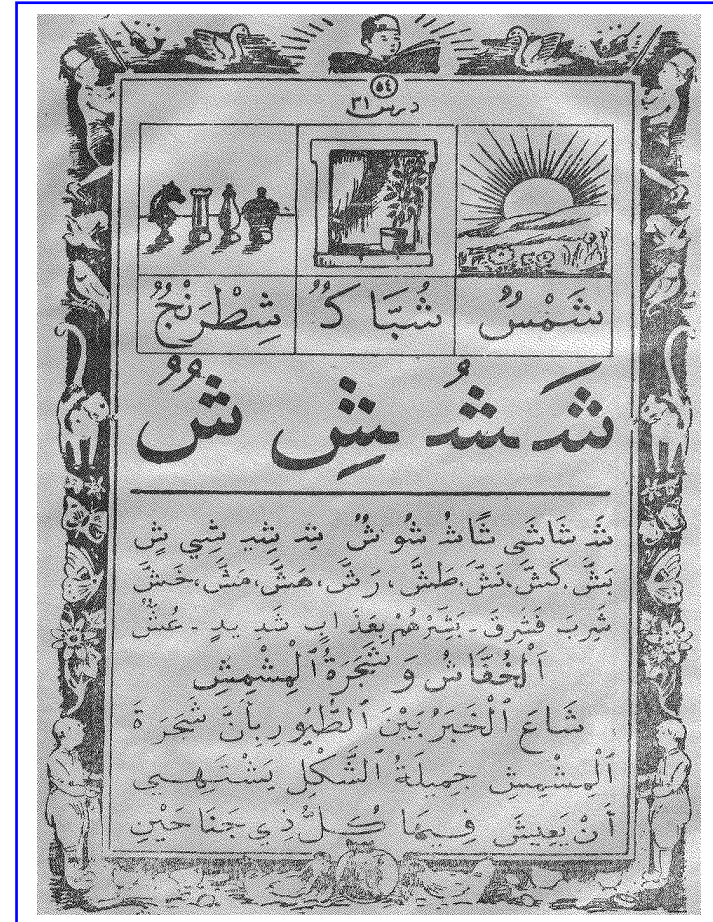 ٥٤
درس ٣١
شَمْسٌ شُبَّاكٌ شِطْرَنْجٌ
شَ شُ شِ شٌ
شَ شَاشَى شًا شُ شُو شٌ شِ شِيـ شِي شٍ
بَشَّ، كَشَّ، نَشَّ، طَشَّ، رَشَّ، هَشَّ، مَشَّ، خَشَّ
شَرِبَ فَشَرِقَ - بَشِّرْهُمْ بِعَذَابٍ شَدِيدٍ - عُشٌّ
اَلْخُفَّاشُ وَشَجَرَةُ ٱلْمِشْمِشِ
شَاعَ ٱلْخَبَرُ بَيْنَ ٱلطُّيُورِ بِأَنَّ شَجَرَةَ
ٱلْمِشْمِشِ جَمِيلَةُ ٱلشَّكْلِ يَشْتَهِي
أَنْ يَعِيشَ فِيهَا كُلُّ ذِي جَنَاحَيْنِ